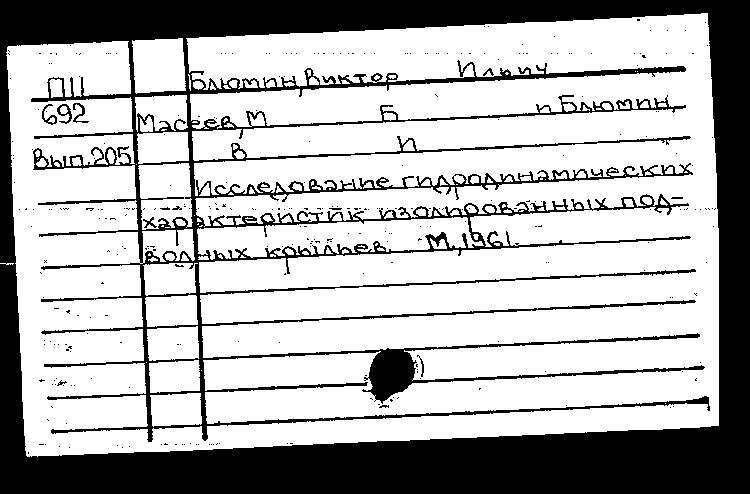 П11 Блюмин, Виктор Ильич
692 Масеев, М Б и Блюмин,
Вып.205 В И
Исследование гидродинамических
характеристик изолированных под=
водных крыльев. М., 1961.